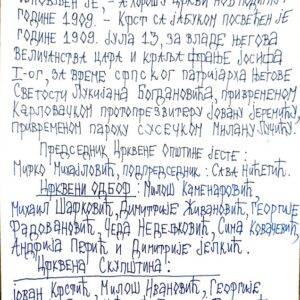 године 1909. - Крст са јабуком посвећен је
године 1909. Јула 13, за владе његова
величанства цара и краља Фрање Јосифа
I-ог, за време српског патријарха његове
светости Лукијана Богдановића, привременом
Карловачком протопрезвитеру Јовану Јеремићу,
привременом пароху сусечком Милану Лучићу.
Председник Црквене општине јесте:
Мирко Михајловић, подпредседник: Сава Нићетић.
Црквени одбор: Милош Каменаровић,
Михаил Шафковић, Димитрије Живановић, Георгије
Радовановић, Чеда Недељковић, Сима Ковачевић,
Андрија Перић и Димитрије Јелкић.
Црквена Скупштина:
Јован Крстић, Милош Ивановић, Георгије,